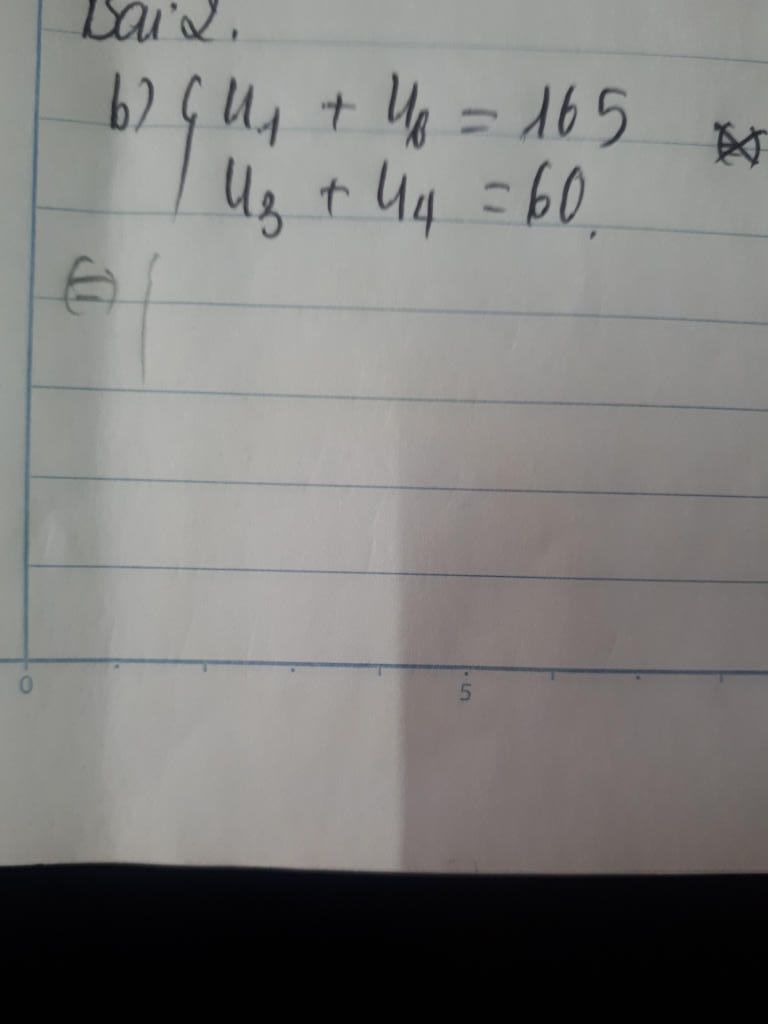 Bài 2.
b) { u₁ + u₆ = 165
u₃ + u₄ = 60.
⇔ {
0 5